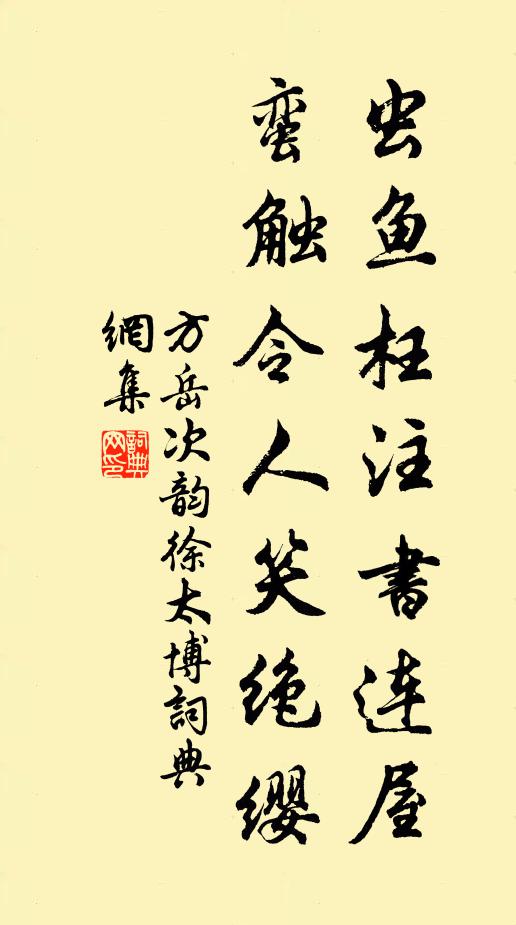 虫鱼枉注书连屋
蛮触令人笑绝缨
方岳次韵徐太博詞典
網集
詞典
网印